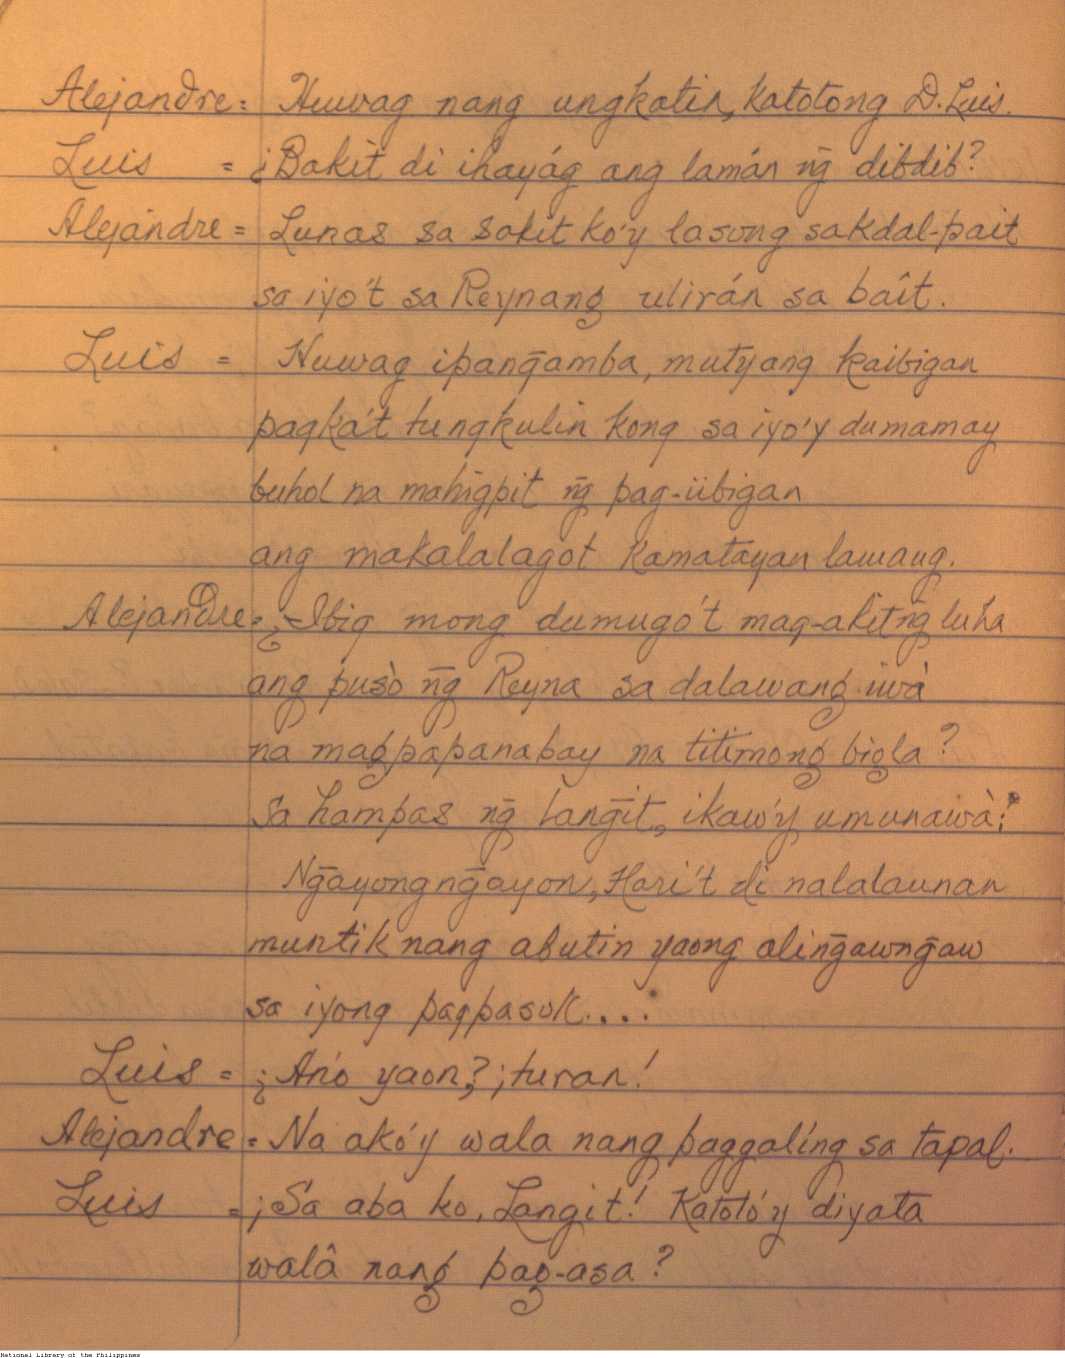 Alejandre = Huwag nang ungkatin, katotong D. Luis.
Luis = ¿Bakìt di ihayág ang lamán n̄g dibdib?
Alejándre = Lunas sa sakit ko'y lasong sakdal-pait
sa iyo't sa Reynang ulirán sa baît.
Luis = Huwag ipan̄gamba, mutyang kaibigan
pagka't tungkulin kong sa iyo'y dumamay
buhol na mahigpit n̄g pag-iibigan
ang makalalagot kamatayan lamang.
Alejandre = ¿-Ibig mong dumugo't mag-akit n̄g luha
ang pusò n̄g Reyna sa dalawang iwà
na magpapanabay na titimong bigla?
Sa hampas n̄g Lan̄git, ikaw'y umunawà!
N̄gayong n̄gayon, Hari't di nalalaunan
muntik nang abutin yaong alin̄gawn̄gaw
sa iyong pagpasok....
Luis = ¿Anó yaon,? ¡turan!
Alejandre = Na akó'y wala nang paggalíng sa tapal.
Luis = ¡Sa aba ko, Langit! Katotó'y diyata
walâ nang pag-asa?
National Library of the Philippines